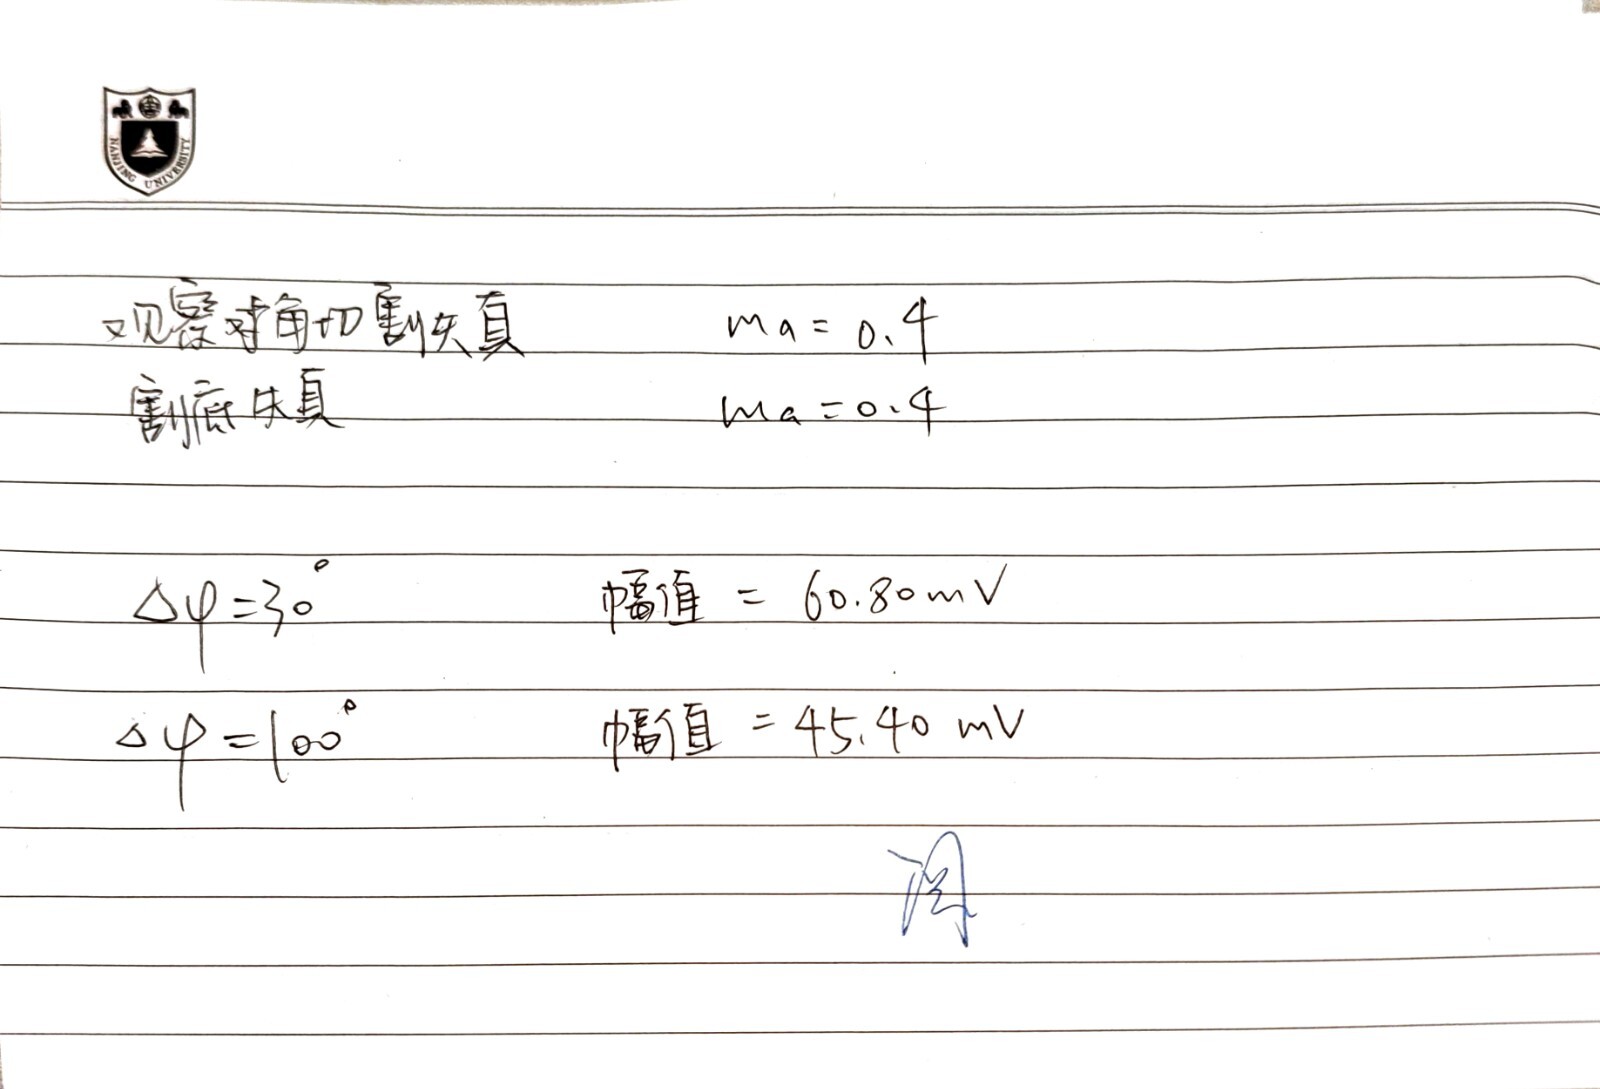 NANJING UNIVERSITY
观察对角切割失真 ma = 0.4
割底失真 ma = 0.4
Δφ = 30° 幅值 = 60.80mV
Δφ = 100° 幅值 = 45.40 mV